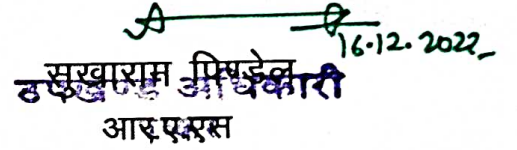 16.12.2022
सुखाराम पिण्डेल
उपखण्ड अधिकारी
आर.ए.एस